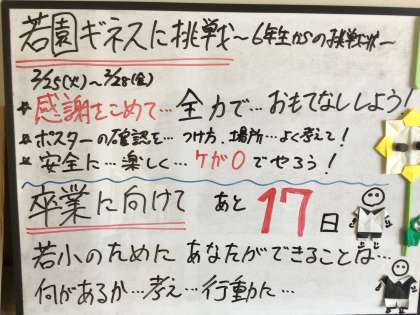 若園ギネスに挑戦～6年生からの挑戦状～
2/25(火)～2/28(金)
感謝をこめて…全力で…おもてなししよう!
ポスターの確認を…つけ方、場所…よく考えて!
安全に…楽しく…ケガ0でやろう!
卒業に向けて あと17日
若小のために あなたができることは…
何があるか…考え…行動に…